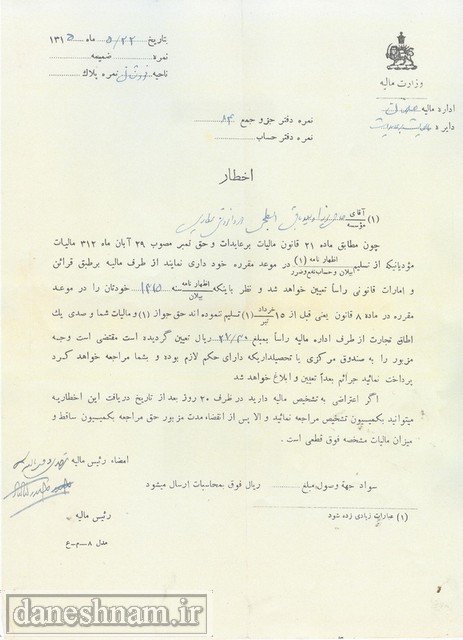 وزارت مالیه
اداره مالیه
دایره
بتاریخ ۵/۲۲ ماه ۱۳۱۵
نمره ضمیمه
ناحیه نمره پلاك
نمره دفتر جزو جمع ۸۳
نمره دفتر حساب
اخطار
(۱) آقای
مؤسسه
چون مطابق ماده ۲۱ قانون مالیات بر عایدات و حق تمبر مصوب ۲۹ آبان ماه ۳۱۲ مالیات
مؤدیانیکه از تسلیم اظهار نامه (۱) بیلان و حساب نفع و ضرر در موعد مقرره خود داری نمایند از طرف مالیه برطبق قرائن
و امارات قانونی رأساً تعیین خواهد شد و نظر باینکه اظهار نامه بیلان سنه ۱۳۱۵ خودتان را در موعد
مقرره در ماده ۸ قانون یعنی قبل از ۱۵ خرداد تیر (۱) تسلیم ننموده اند حق جواز (۱) و مالیات شما و صدی یك
اطاق تجارت از طرف اداره مالیه رأساً بمبلغ ۲۷/۳۰ ریال تعیین گردیده است مقتضی است وجه
مزبور را به صندوق مرکزی یا تحصیلداریکه دارای حکم لازم بوده و بشما مراجعه خواهد کرد
پرداخت نمائید جرائم بعداً تعیین و ابلاغ خواهد شد
اگر اعتراضی به تشخیص مالیه دارید در ظرف ۲۰ روز بعد از تاریخ دریافت این اخطاریه
میتوانید بکمیسیون تشخیص مراجعه نمائید و الا پس از انقضاء مدت مزبور حق مراجعه بکمیسیون ساقط و
میزان مالیات مشخصه فوق قطعی است .
امضاء رئیس مالیه
سواد جهة وصول، مبلغ ریال فوق بمحاسبات ارسال میشود
رئیس مالیه
(۱) عبارات زیادی زده شود
مدل ۸-م-ع
daneshnam.ir